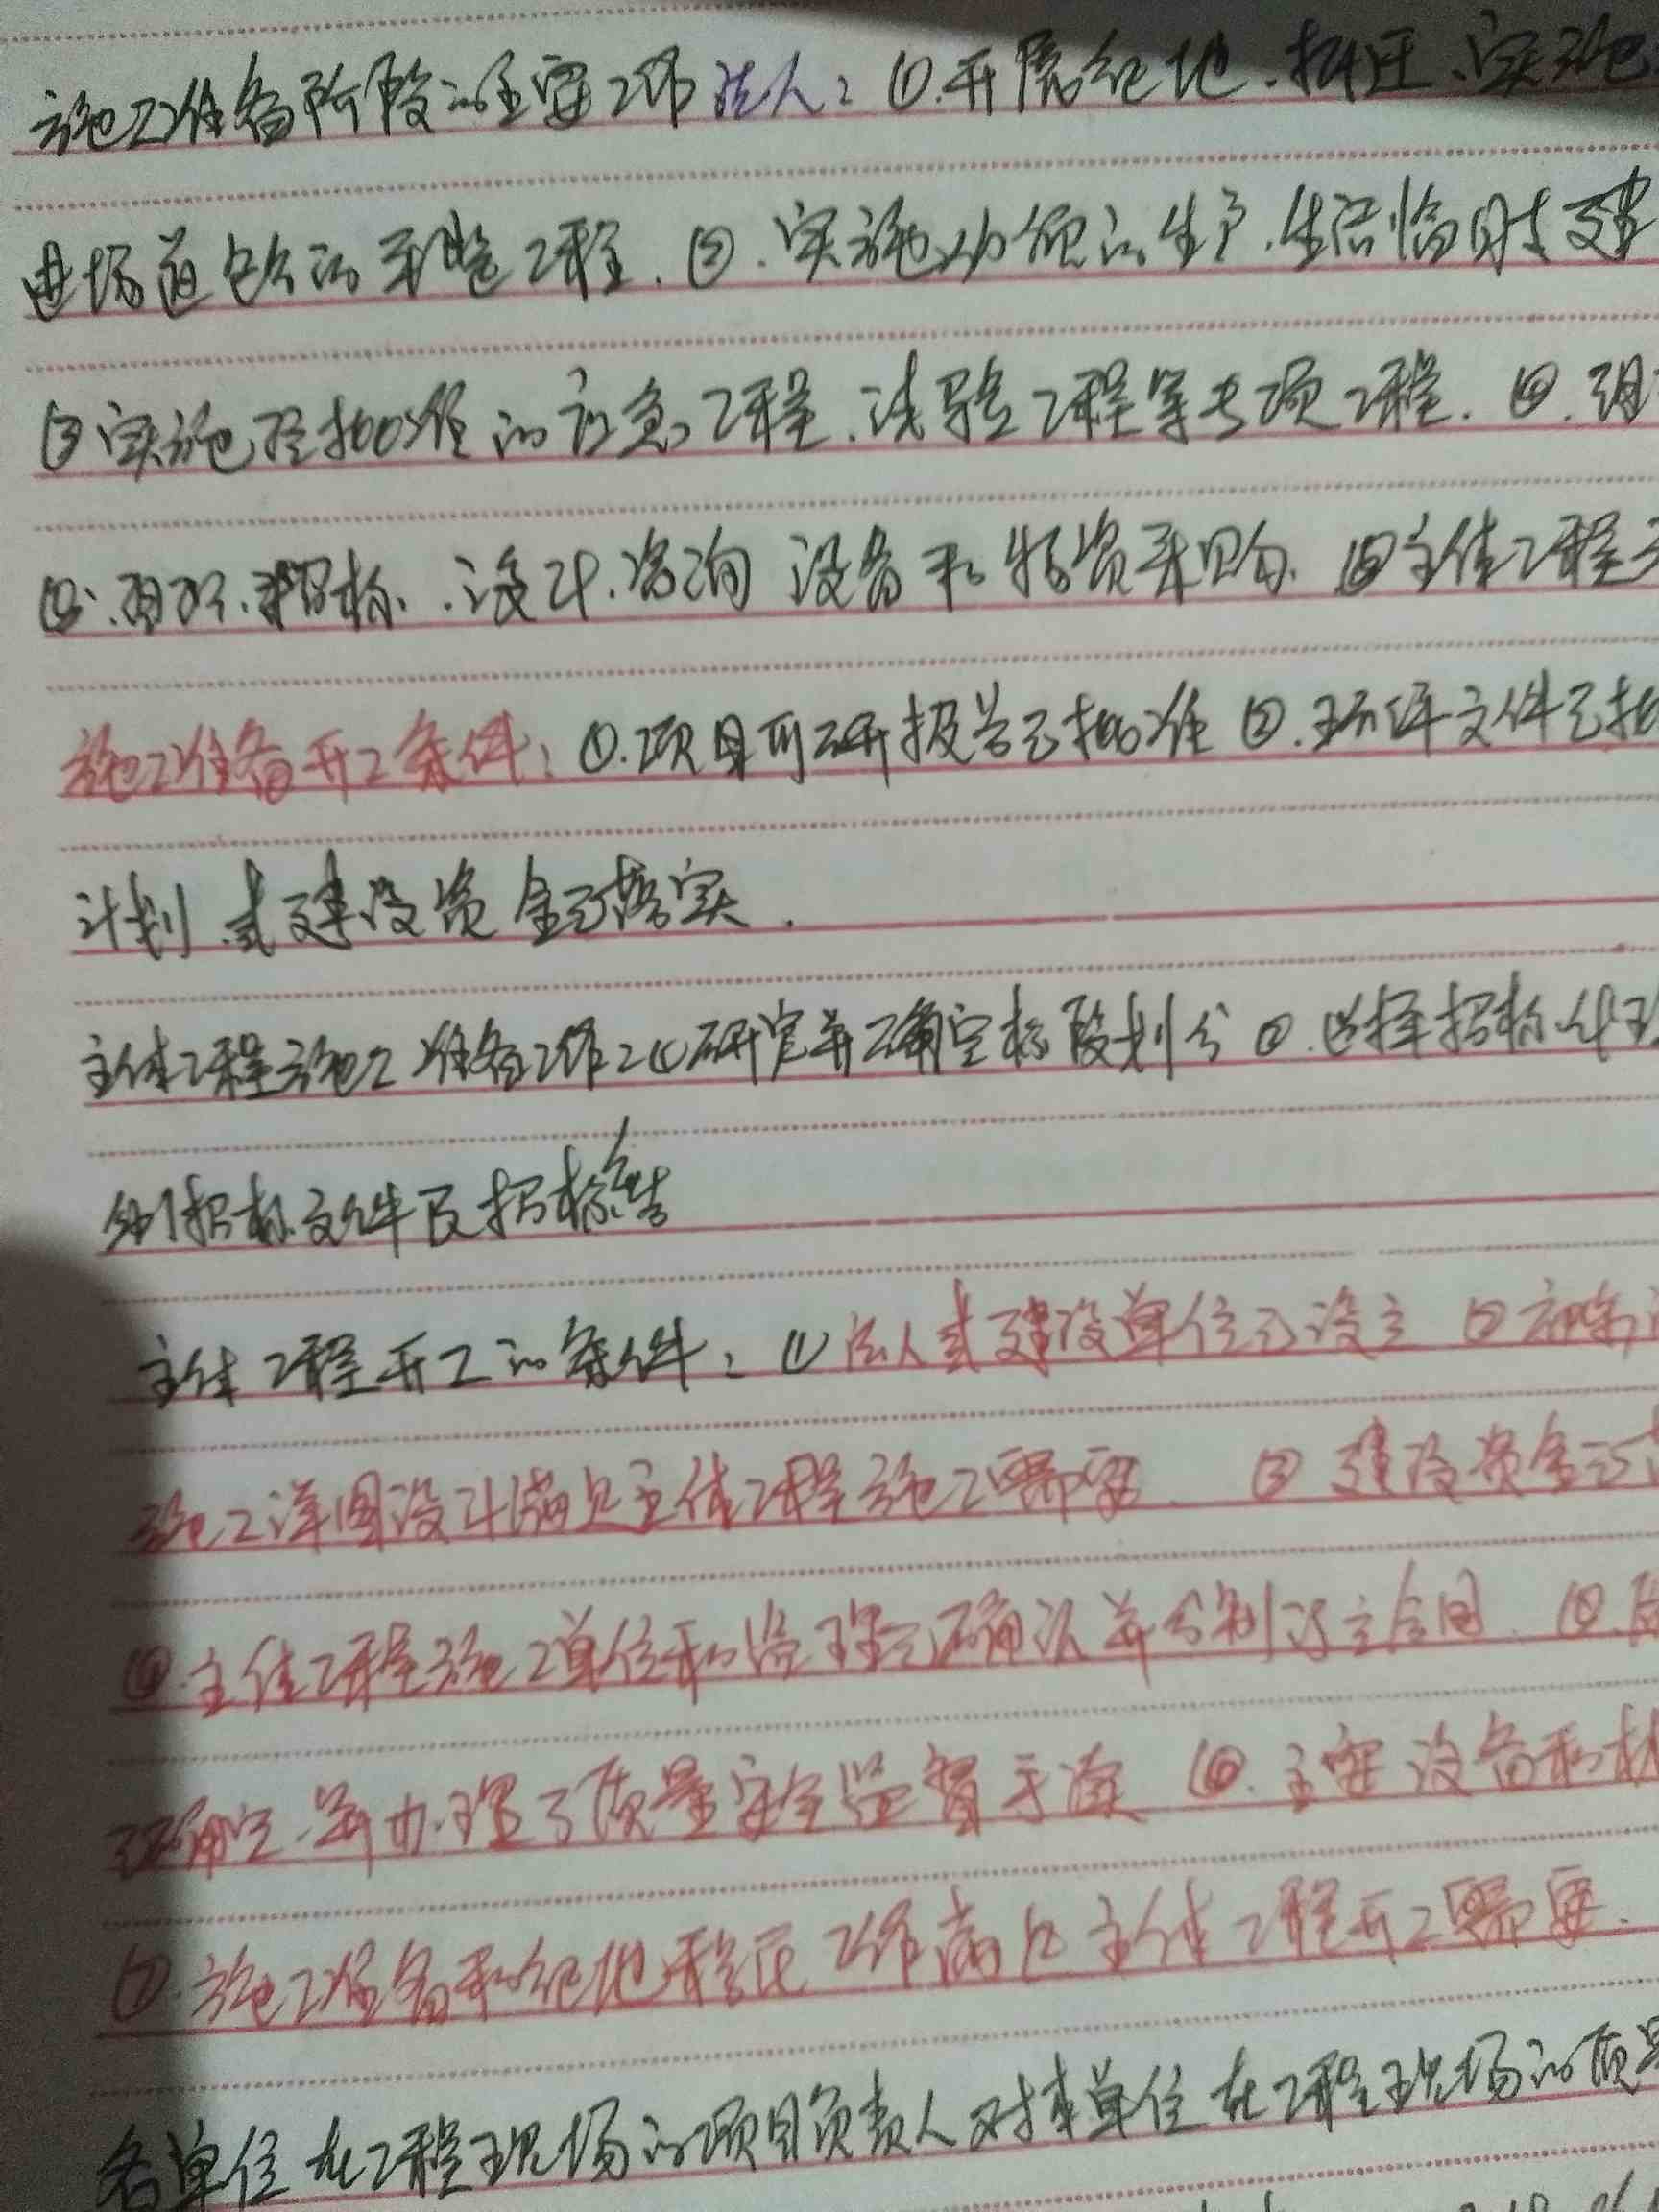 施工准备阶段的主要工作法人：①.开展征地.拆迁、实施
进场道路的新建工程.②.实施必须的生产.生活临时建
③实施经批准的应急工程.试验工程等专项工程.④.组
招标.设计.咨询 设备和物资采购.⑥主体工程
施工准备开工条件：①.项目可研报告已批准②.环评文件已批
计划.或建设资金已落实.
主体工程施工准备工作：①研究并确定标段划分②.选择招标代理
制招标文件及招标公告
主体工程开工的条件：①法人或建设单位已设立②初步
施工详图设计满足主体工程施工需要 ③建设资金已
④.主体工程施工单位和监理已确认并分别订立合同.⑤.质
已确定.并办理了质量安全监督手续 ⑥.主要设备和材
⑦.施工准备和征地移民工作满足主体工程开工需要.
各单位在工程现场的项目负责人对本单位在工程现场的质量